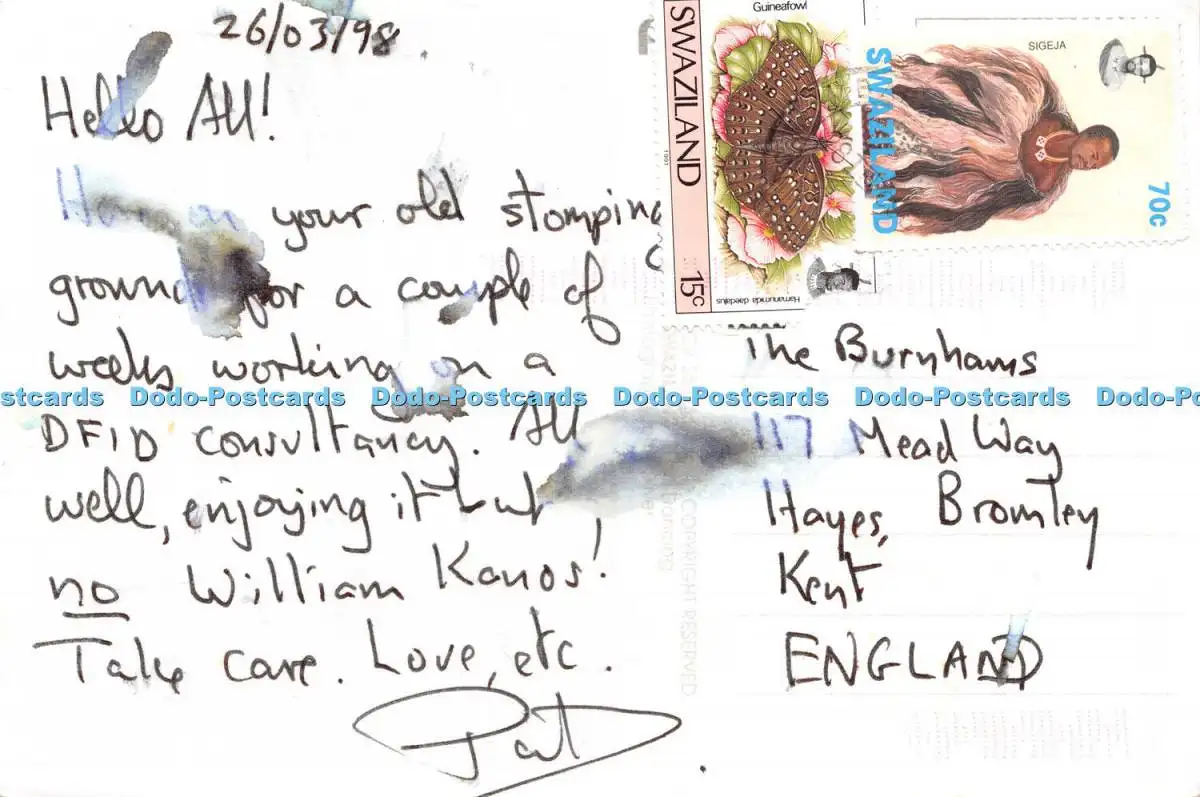 26/03/98
Hello All!
your old stomping
ground for a couple of
weeks working on a
DFID consultancy. All
well, enjoying it but
no William Kanos!
Take care. Love, etc.
Pat
Guineafowl
SWAZILAND
1991
15c
Hamanumida daedalus
SIGEJA
SWAZILAND
70c
The Burnhams
117 Mead Way
Hayes, Bromley
Kent
ENGLAND
COPYRIGHT RESERVED
stcards Dodo-Postcards Dodo-Postcards Dodo-Postcards Dodo-Postcards Dodo-Po